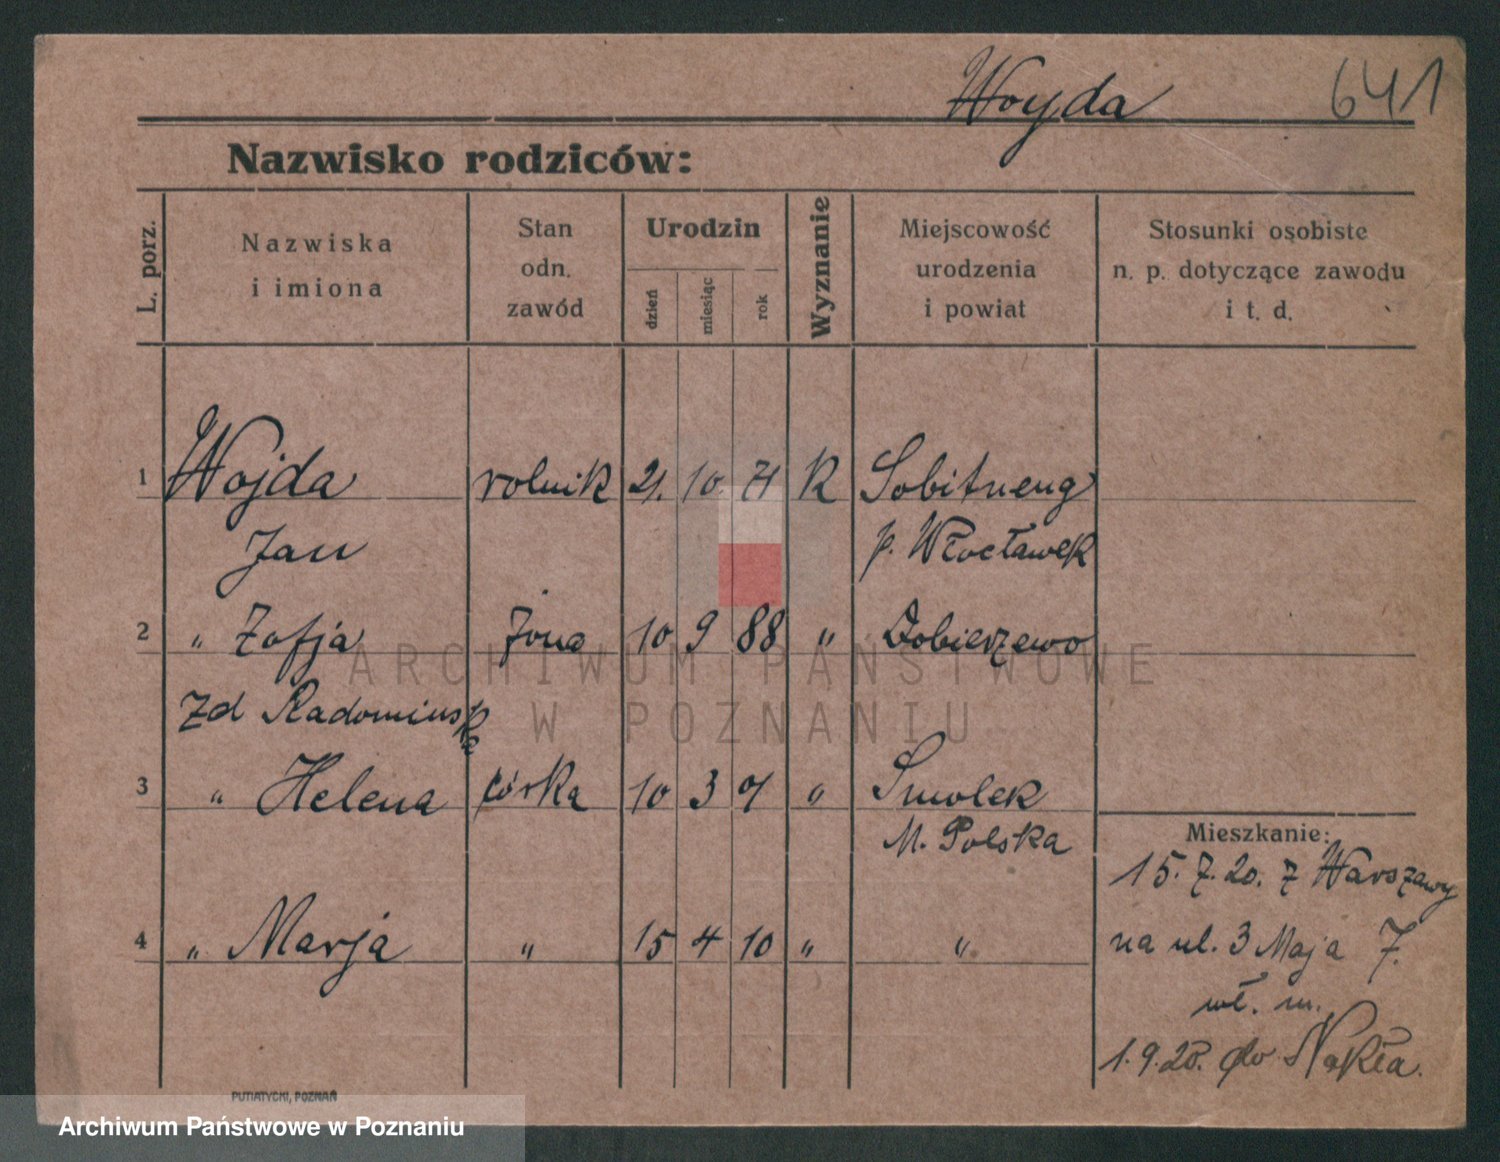 Woyda 641
Nazwisko rodziców:
L. porz.
Nazwiska
i imiona
Stan
odn.
zawód
Urodzin
dzień
miesiąc
rok
Wyznanie
Miejscowość
urodzenia
i powiat
Stosunki osobiste
n. p. dotyczące zawodu
i t. d.
1 Wojda rolnik 21. 10 71 K Sobitneng
Jan p. Włocławek
2 " Zofja żona 10 9 88 " Dobierzewo
zd Radomińska
3 " Helena córka 10 3 07 " Smolek
M. Polska
4 " Marja " 15 4 10 " "
Mieszkanie:
15. 7. 20. z Warszawy
na ul. 3 Maja 7.
wł. m.
1. 9. 20. do Nakła.
PUTIATYCKI, POZNAŃ
ARCHIWUM PAŃSTWOWE
W POZNANIU
Archiwum Państwowe w Poznaniu